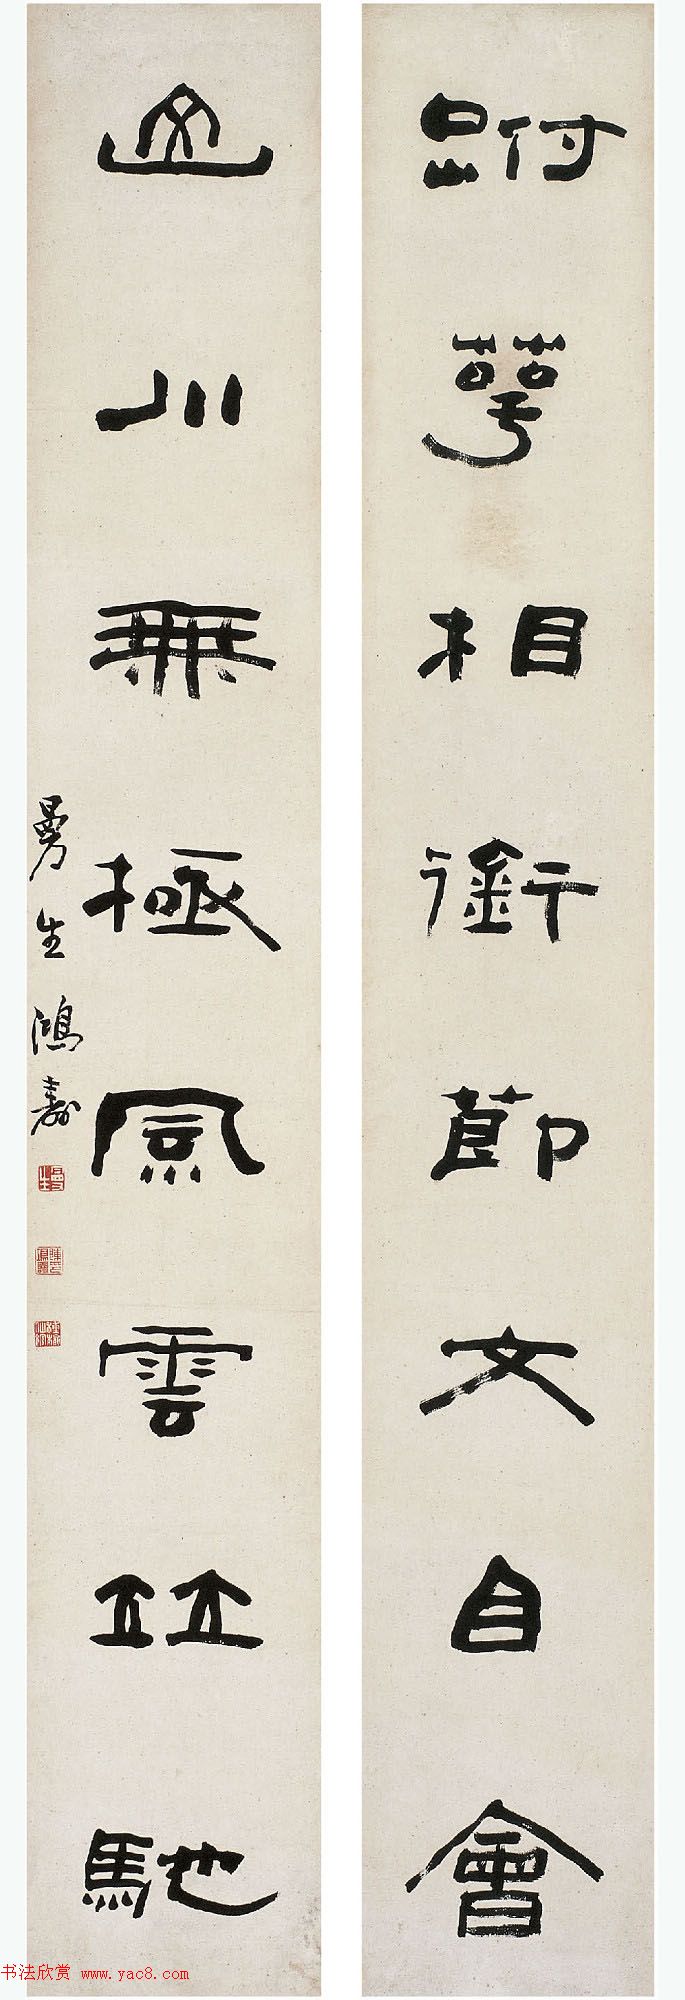 跗萼相銜節文自會
山川無極風雲竝馳
曼生鴻壽
书法欣赏 www.yac8.com